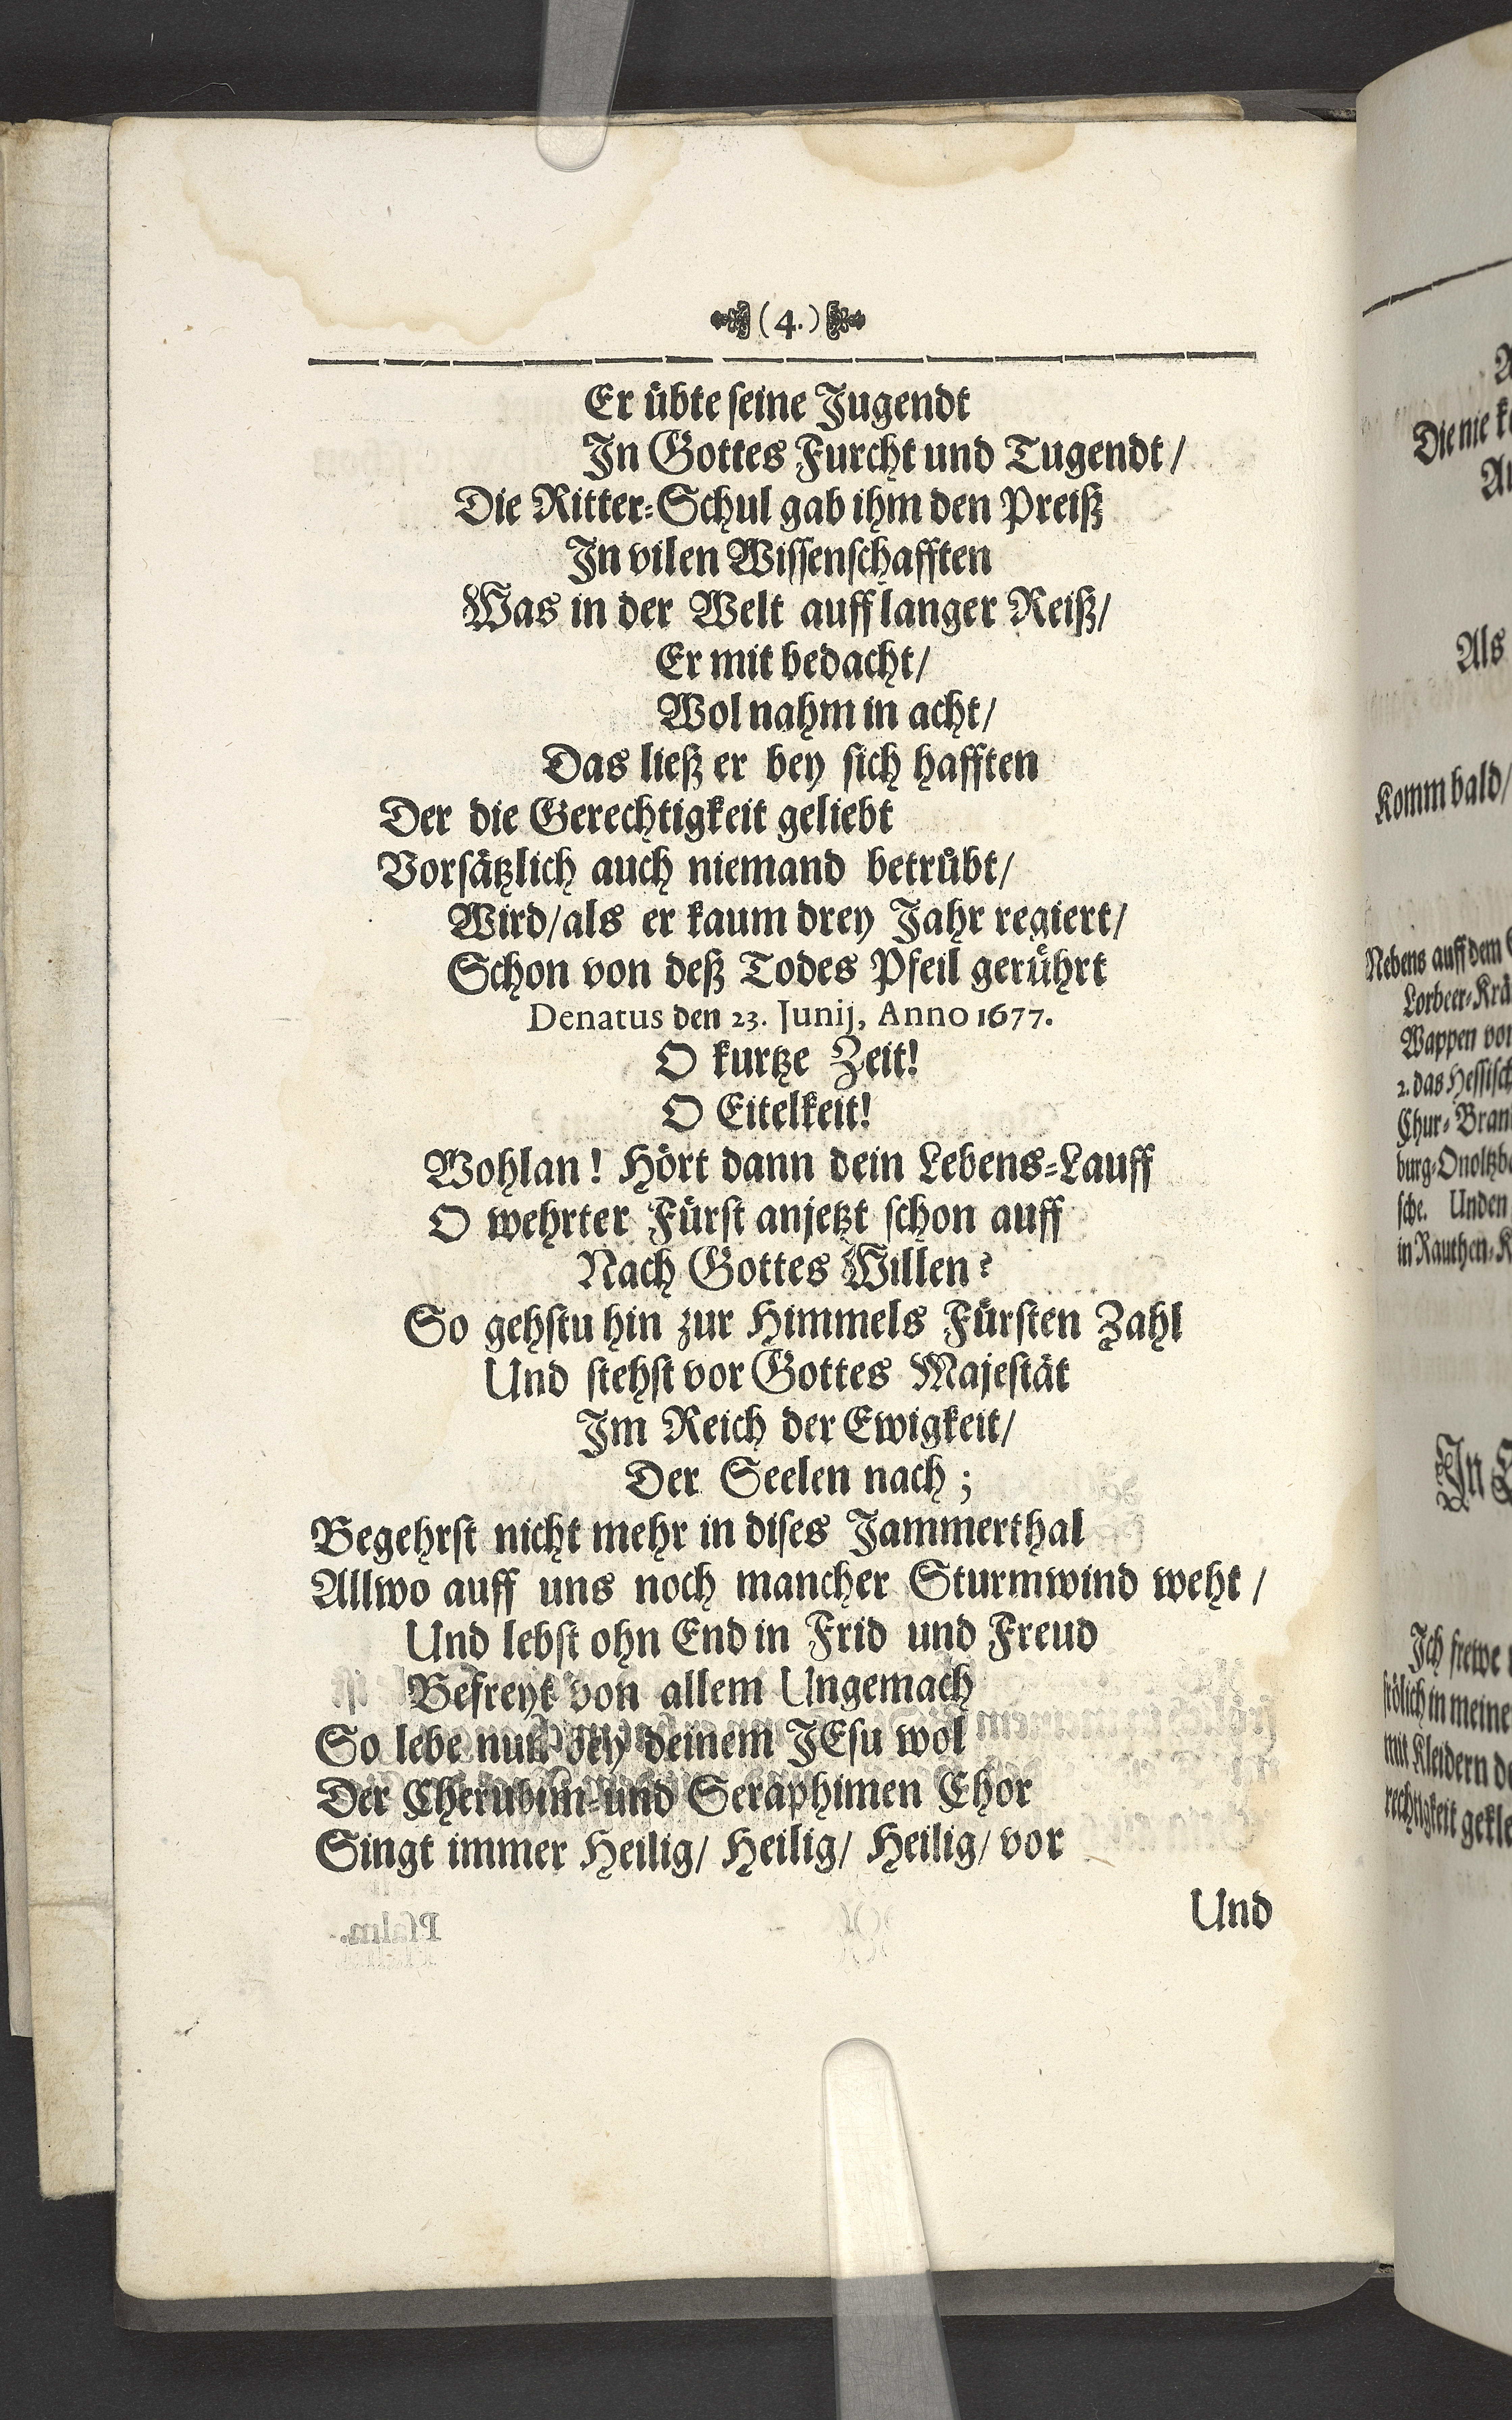 (4.)
Er übte ſeine Jugendt
In Gottes Furcht und Tugendt/
Die Ritter-Schul gab ihm den Preiß
In vilen Wiſſenſchafften
Was in der Welt auff langer Reiß/
Er mit bedacht/
Wol nahm in acht/
Das ließ er bey ſich hafften
Der die Gerechtigkeit geliebt
Vorſätzlich auch niemand betrübt/
Wird/als er kaum drey Jahr regiert/
Schon von deß Todes Pfeil gerührt
Denatus den 23. Junij, Anno 1677.
O kurtze Zeit!
O Eitelkeit!
Wohlan! Hört dann dein Lebens-Lauff
O wehrter Fürſt anjetzt ſchon auff
Nach Gottes Willen?
So gehſtu hin zur Himmels Fürſten Zahl
Und ſtehſt vor Gottes Majeſtät
Im Reich der Ewigkeit/
Der Seelen nach;
Begehrſt nicht mehr in diſes Jammerthal
Allwo auff uns noch mancher Sturmwind weht/
Und lebſt ohn End in Frid und Freud
Befreyt von allem Ungemach
So lebe nun bey deinem JEſu wol
Der Cherubim-und Seraphimen Chor
Singt immer Heilig/ Heilig/ Heilig/ vor
Und
Die nie
Als
Komm bald/
Nebens auff dem
Wappen
2. das
Chur-
ſche. Unden
Jch frewe
frölich in meine
mit Kleidern